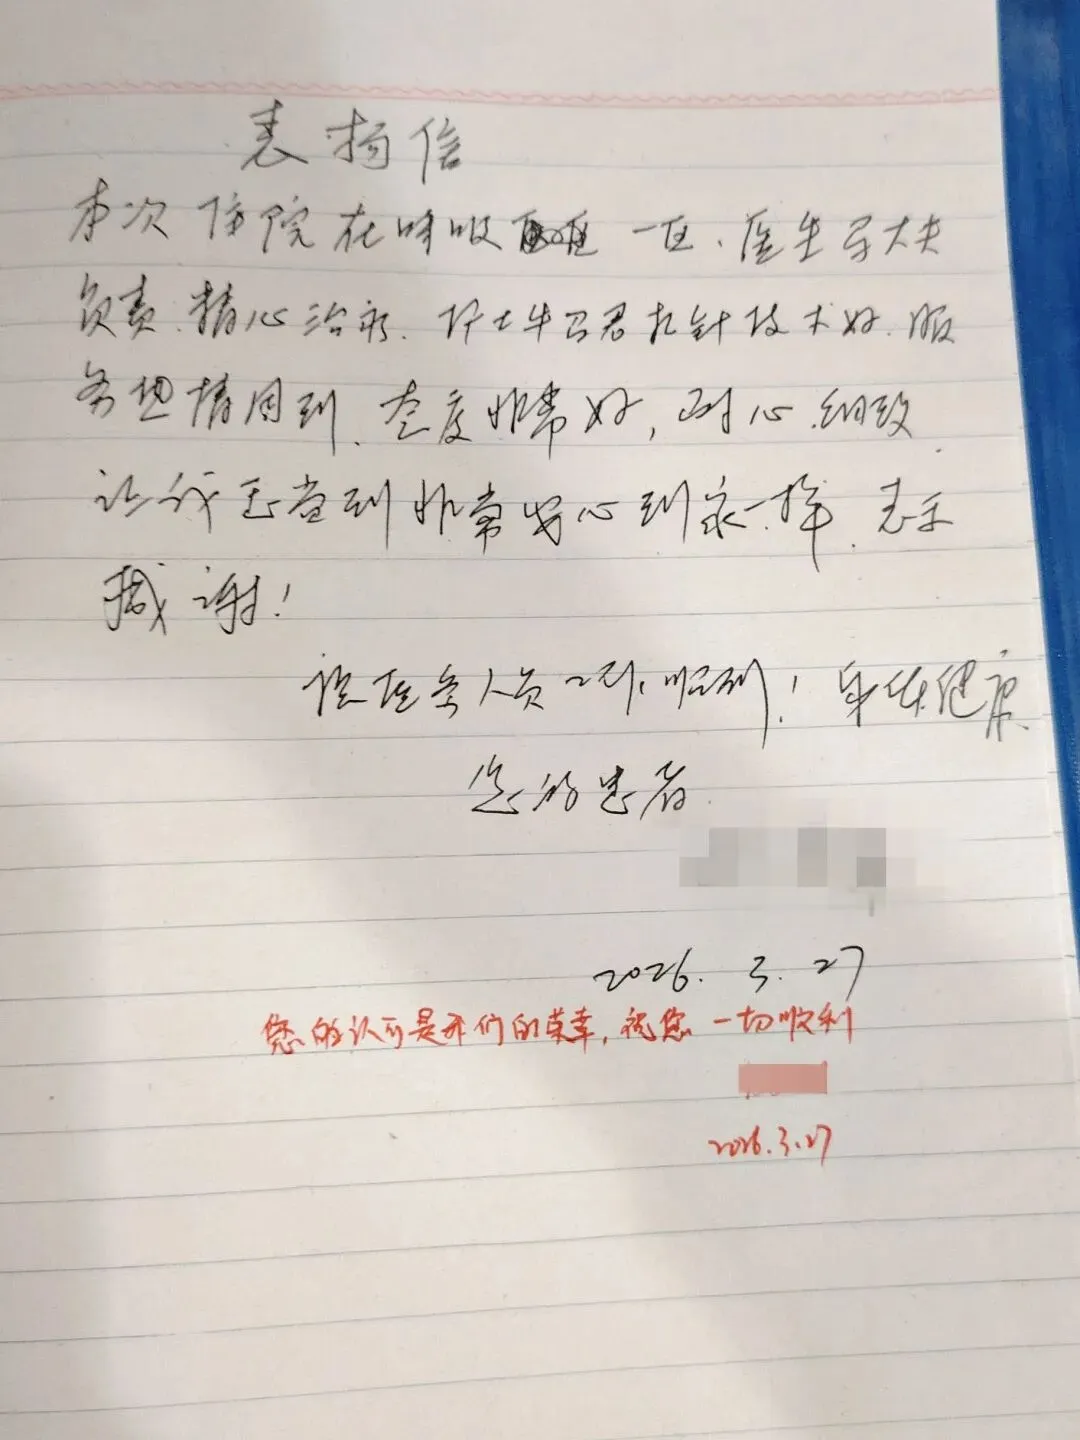 表扬信
本次住院在呼吸 一区、医生 大夫
负责.精心治疗.护士牛卫君扎针技术好.服
务热情周到、态度非常好,耐心.细致
让我 到非常安心到家一样.表示
感谢!
祝医务人员工作顺利!身体健康
您的患者
2026.3.27
您的认可是我们的荣幸,祝您一切顺利
2026.3.27